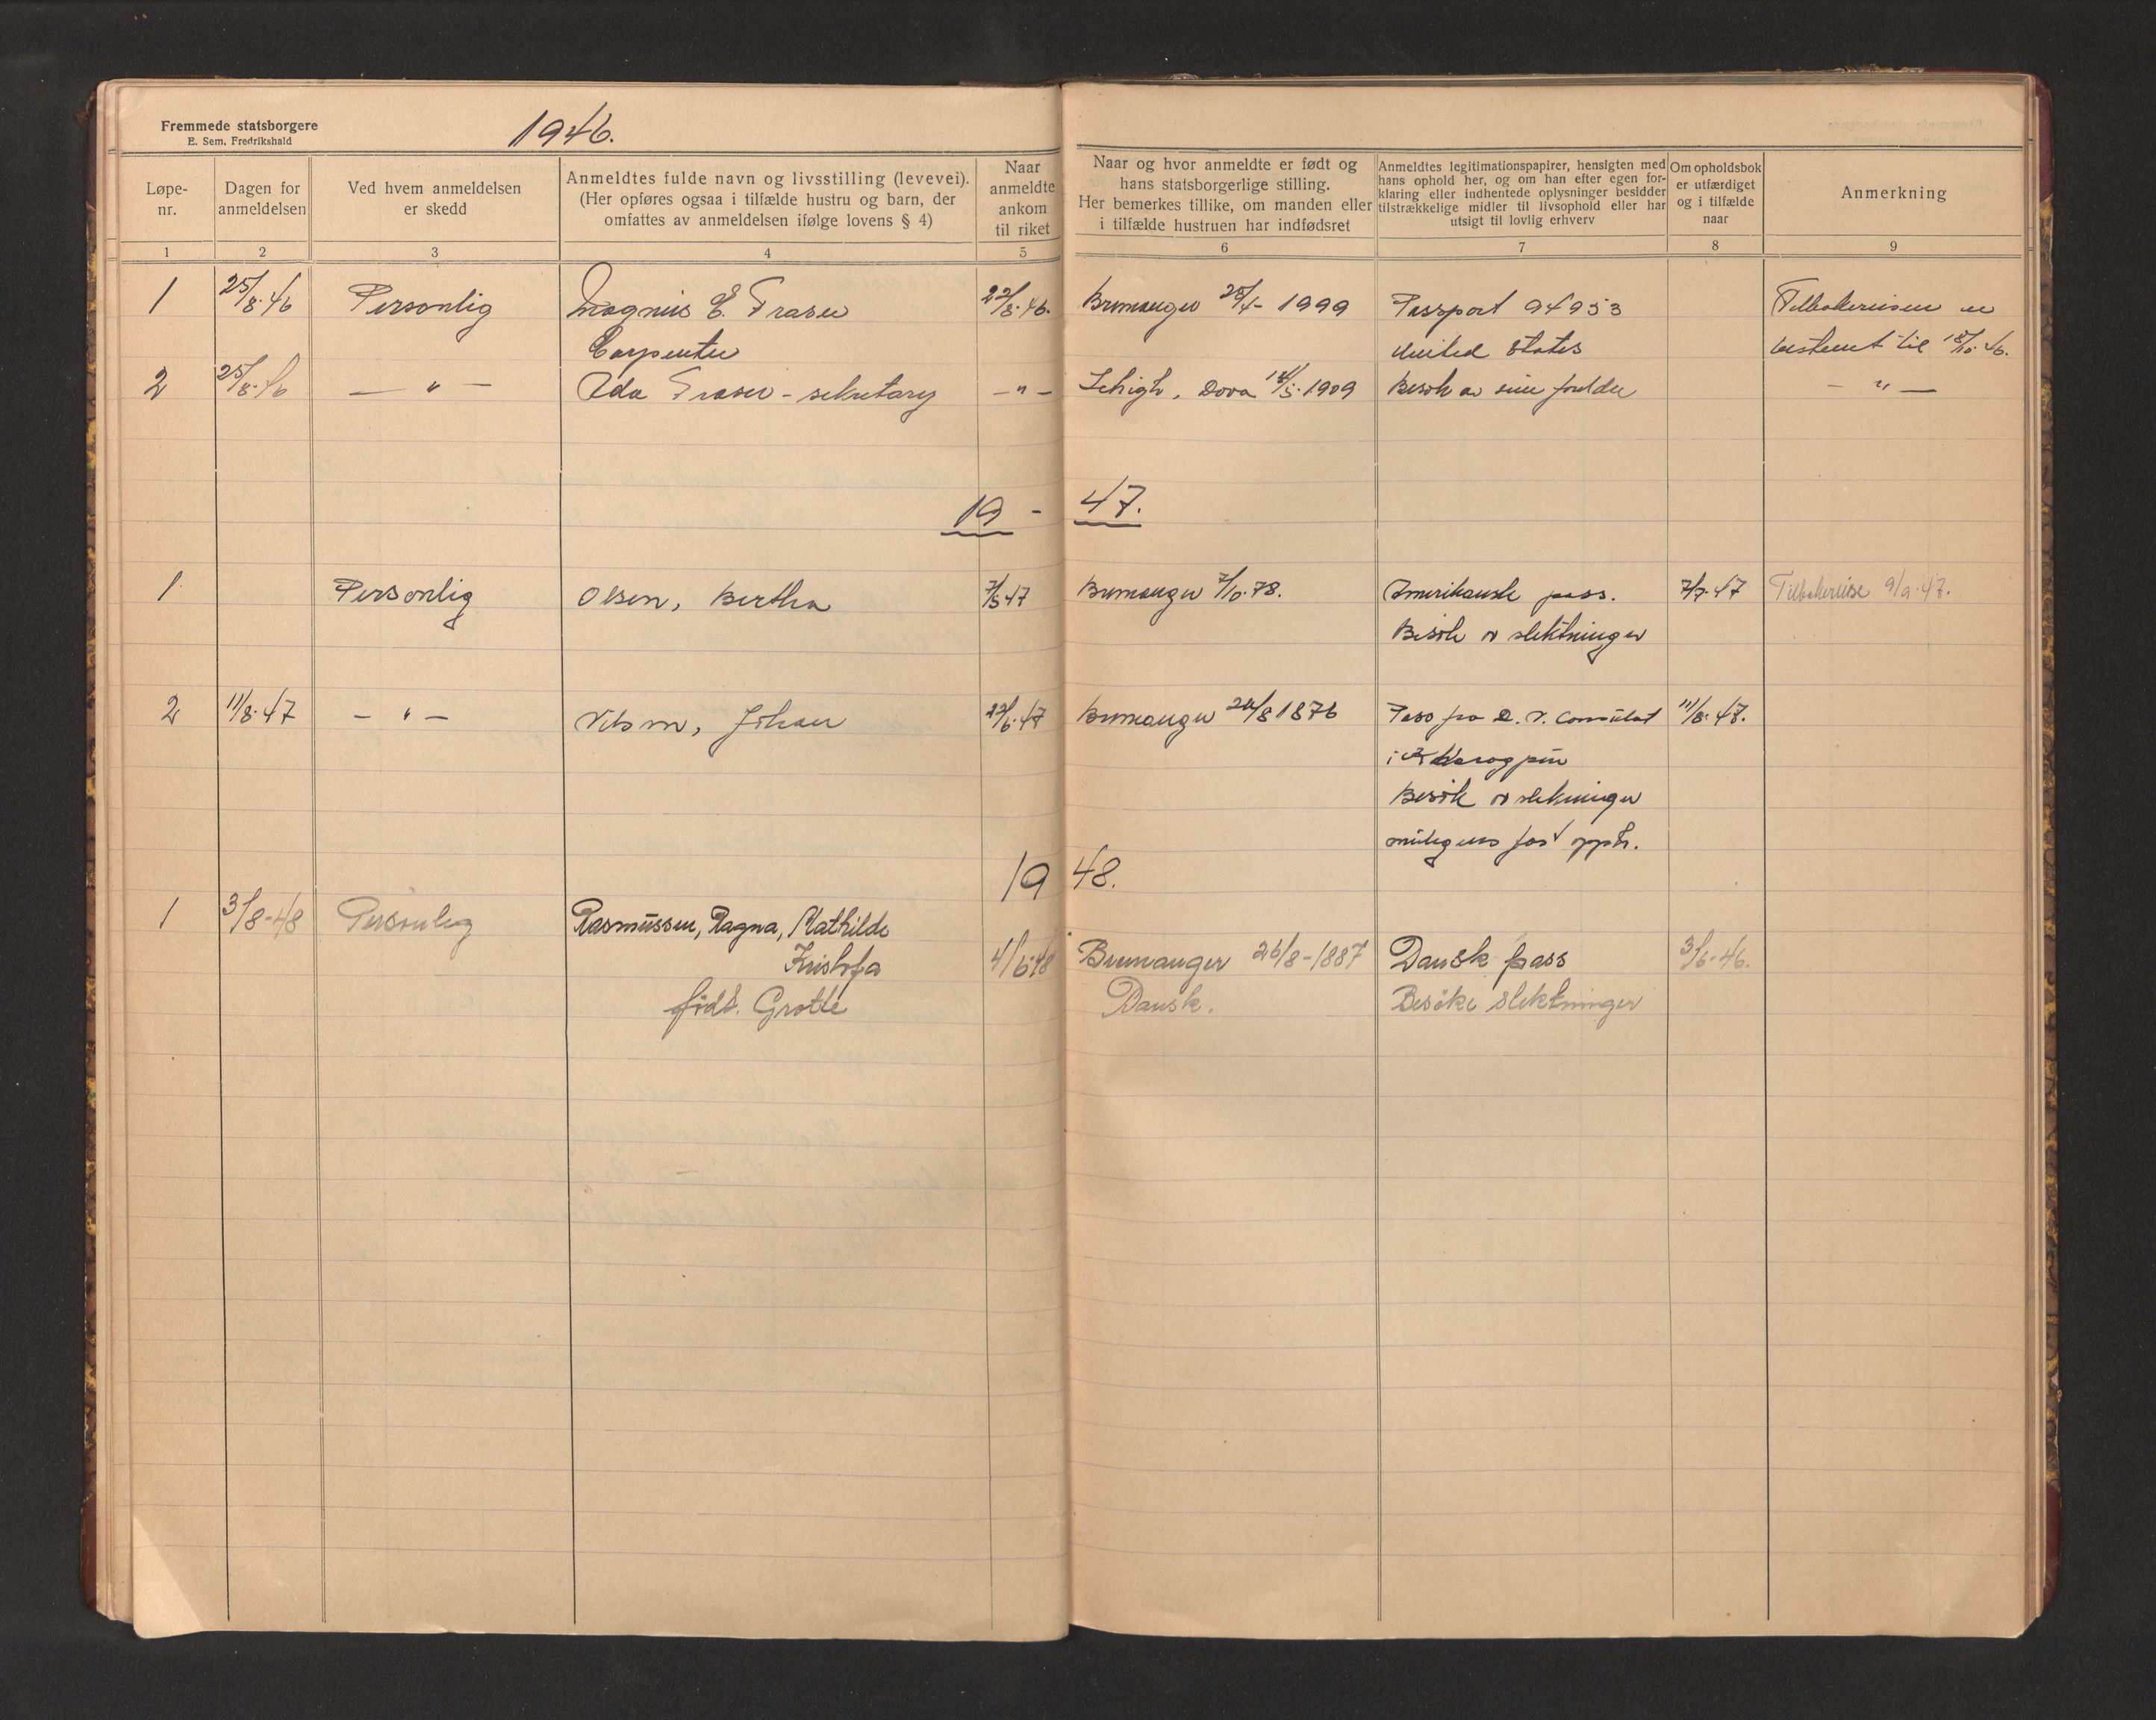 Fremmede statsborgere
E. Sem, Fredrikshald
1946.
Løpe-
nr.
Dagen for
anmeldelsen
Ved hvem anmeldelsen
er skedd
Anmeldtes fulde navn og livsstilling (levevei).
(Her opføres ogsaa i tilfælde hustru og barn, der
omfattes av anmeldelsen ifølge lovens § 4)
Naar
anmeldte
ankom
til riket
Naar og hvor anmeldte er født og
hans statsborgerlige stilling.
Her bemerkes tillike, om manden eller
i tilfælde hustruen har indfødsret
Anmeldtes legitimationspapirer, hensigten med
hans ophold her, og om han efter egen for-
klaring eller indhentede oplysninger besidder
tilstrækkelige midler til livsophold eller har
utsigt til lovlig erhverv
Om opholdsbok
er utfærdiget
og i tilfælde
naar
Anmerkning
1 2 3 4 5 6 7 8 9
1 25/8.46 Personlig Magnus E. Fraser 22/8.46. Bremanger 1999 Passport 94953 Tilbakereisen er
Carpenter United States bestemt til 18/10.46.
2 25/8.46 — " — Ada Fraser - sekretary — " — Lehigh, 1909 Besøk av sine foreldre — " —
19 - 47.
1 Personlig Olsen, Bertha 7/5 47 Bremanger 7/10.78. Amerikansk pass. 7/7.47 Tilbakereise 9/9.47.
Besøk av slektninger
2 11/8.47 — " — Nilsen, Johan 22/6.47 Bremanger 1876 Pass fra Consulat 11/8.47.
i
Besøk av slektninger
muligens fast opph.
19 48.
1 3/8-48 Personlig Rasmussen, Ragna, Mathilde
Kristofa 4/6 48 Bremanger 26/8-1887 Dansk pass 3/6-46.
født. Grotle Dansk. Besøke slektninger